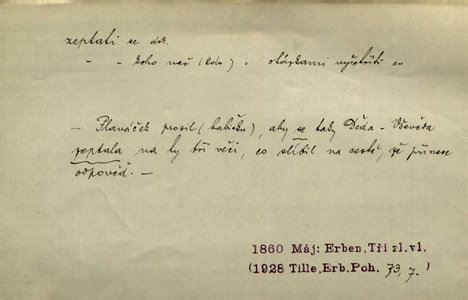 zeptati se dok.
- - koho nač (kdo) : otázkami vyšetřiti co
- Plaváček prosil (babičku), aby se taky Děda-Vševěda
zeptala na ty tři věci, co slíbil na cestě, že přinese
odpověď. -
1860 Máj: Erben, Tři zl. vl.
(1928 Tille, Erb. Poh. 73, 7-)